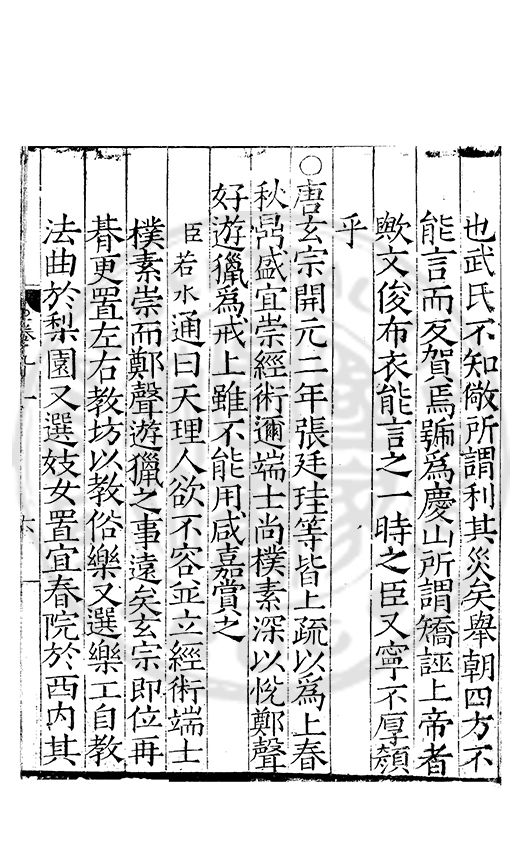 也武氏不知儆所謂利其災矣舉朝四方不
能言而反賀焉號為慶山所謂矯誣上帝者
歟文俊布衣能言之一時之臣又寧不厚顏
乎
○唐玄宗開元二年張廷珪等皆上疏以為上春
秋鼎盛宜崇經術邇端士尚樸素深以悅鄭聲
好遊獵為戒上雖不能用咸嘉賞之
臣若水通曰天理人欲不容並立經術端士
樸素崇而鄭聲遊獵之事遠矣玄宗即位再
朞更置左右教坊以教俗樂又選樂工自教
法曲於梨園又選妓女置宜春院於西內其